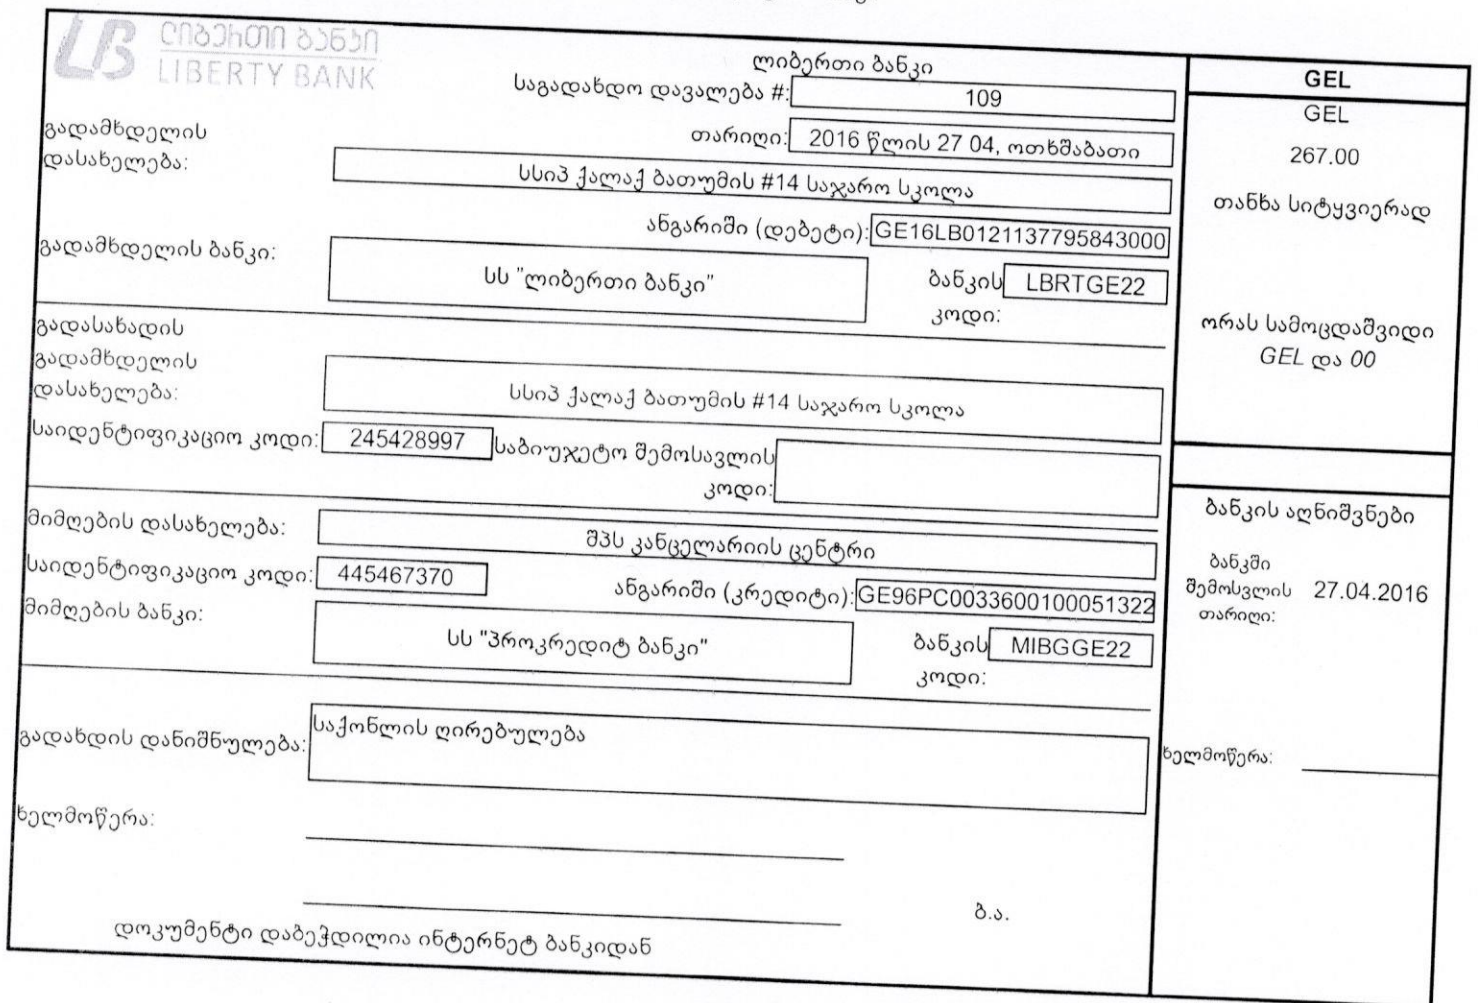 ლიბერთი ბანკი
LIBERTY BANK
ლიბერთი ბანკი
საგადახდო დავალება #: 109
თარიღი: 2016 წლის 27 04, ოთხშაბათი
გადამხდელის
დასახელება:
სსიპ ქალაქ ბათუმის #14 საჯარო სკოლა
ანგარიში (დებეტი): GE16LB0121137795843000
გადამხდელის ბანკი:
სს "ლიბერთი ბანკი"
ბანკის LBRTGE22
კოდი:
გადასახადის
გადამხდელის
დასახელება:
სსიპ ქალაქ ბათუმის #14 საჯარო სკოლა
საიდენტიფიკაციო კოდი: 245428997 საბიუჯეტო შემოსავლის
კოდი:
მიმღების დასახელება:
შპს კანცელარიის ცენტრი
საიდენტიფიკაციო კოდი: 445467370
ანგარიში (კრედიტი): GE96PC0033600100051322
მიმღების ბანკი:
სს "პროკრედიტ ბანკი"
ბანკის MIBGGE22
კოდი:
გადახდის დანიშნულება:
საქონლის ღირებულება
ხელმოწერა:
ბ.ა.
დოკუმენტი დაბეჭდილია ინტერნეტ ბანკიდან
GEL
GEL
267.00
თანხა სიტყვიერად
ორას სამოცდაშვიდი
GEL და 00
ბანკის აღნიშვნები
ბანკში
შემოსვლის 27.04.2016
თარიღი:
ხელმოწერა: